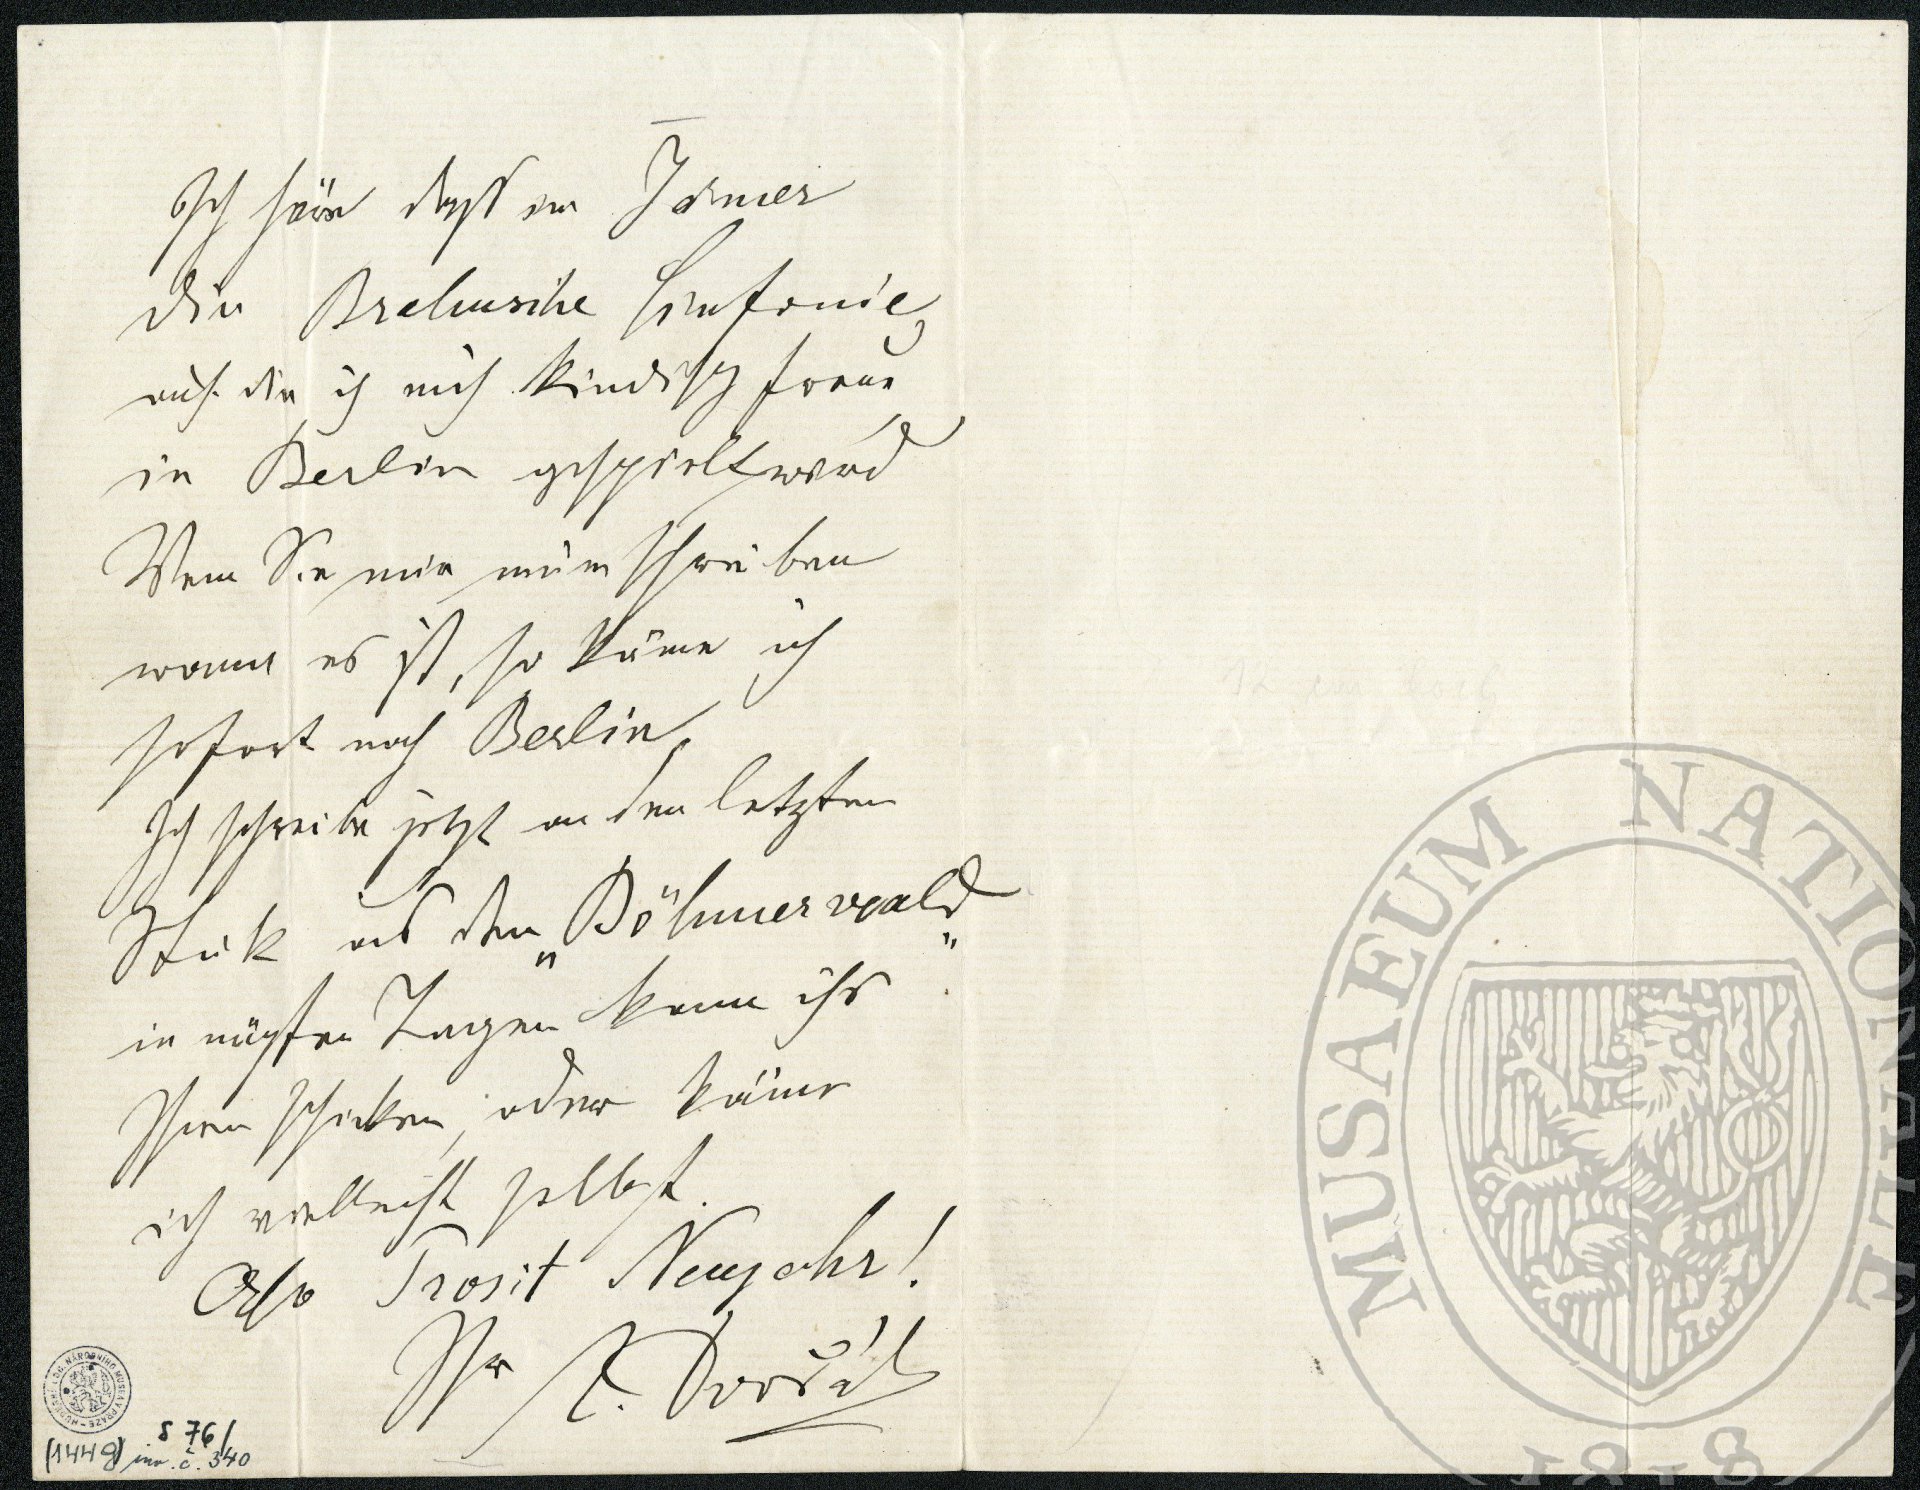 Ich höre daß im Jänner
die Brahmsche Sinfonie,
auf die ich mich kindisch freue
in Berlin gespielt wird
Wenn Sie mir nun schreiben
wann es ist, so käme ich
sofort nach Berlin,
Ich schreibe jetzt an den letzten
Stük aus dem „Böhmerwald“
in nächsten Tagen kann ichs
Ihnen schicken, oder käme
ich vielleicht selbst.
Also Prosit Neujahr!
Ihr A. Dvořák
NÁRODNÍHO MUSEA V PRAZE
S 76/
(1449) inv. č. 340
MUSAEUM NATIONALE
1818